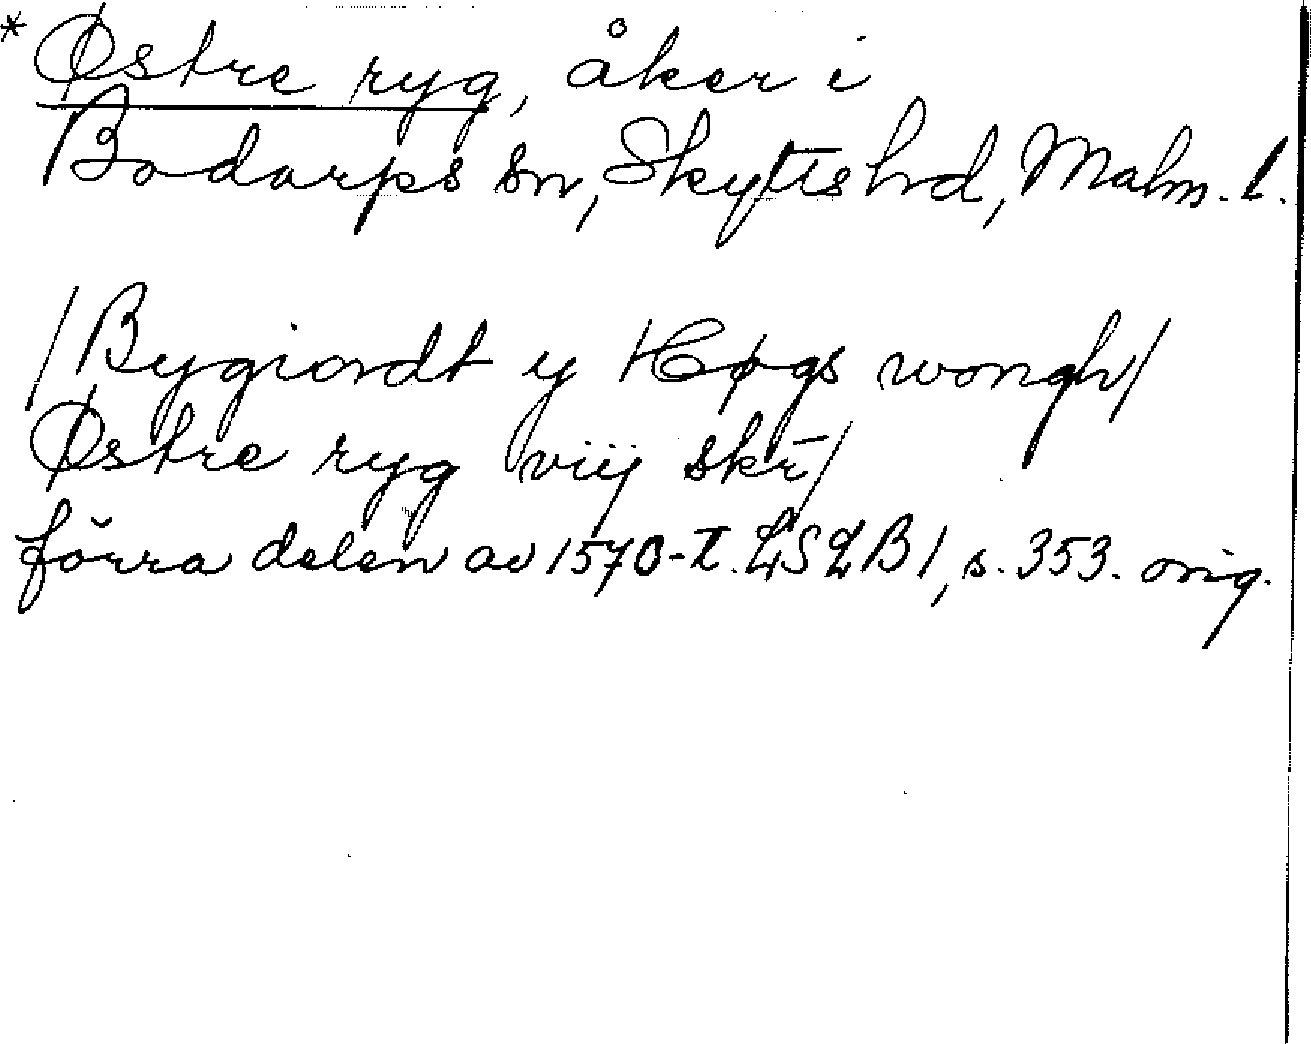 * Østre ryg, åker i
Bodarps sn, Skytts hd, Malm. l.
/Bygiordt y Høgs wongh/
Østre ryg viij skr/
förra delen av 1570-t. LSLB1, s. 353. orig.